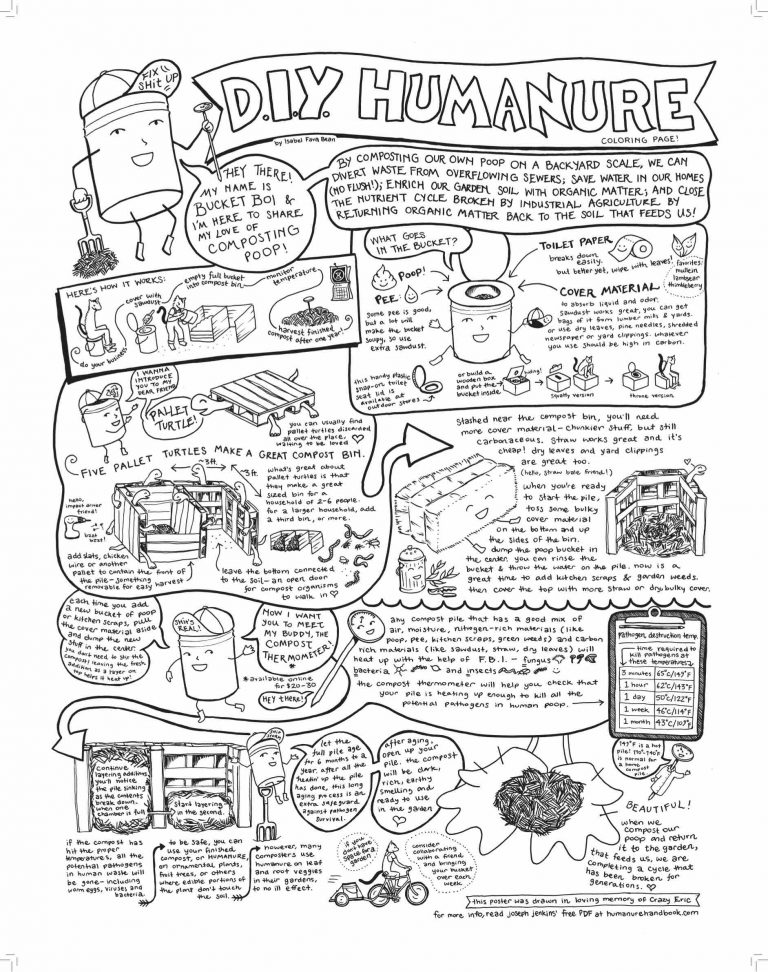 FIX
SHIT UP
D.I.Y. HUMANURE
COLORING PAGE!
by Isabel Fava Bean
HEY THERE!
MY NAME IS
BUCKET BOI &
I'M HERE TO SHARE
MY LOVE OF
COMPOSTING
POOP!
BY COMPOSTING OUR OWN POOP ON A BACKYARD SCALE, WE CAN
DIVERT WASTE FROM OVERFLOWING SEWERS; SAVE WATER IN OUR HOMES
(NO FLUSH!); ENRICH OUR GARDEN SOIL WITH ORGANIC MATTER; AND CLOSE
THE NUTRIENT CYCLE BROKEN BY INDUSTRIAL AGRICULTURE BY
RETURNING ORGANIC MATTER BACK TO THE SOIL THAT FEEDS US!
HERE'S HOW IT WORKS:
do your business
cover with
sawdust
empty full bucket
into compost bin
monitor
temperature
harvest finished
compost after one year!
WHAT GOES
IN THE BUCKET?
POOP!
PEE:
some pee is good,
but a lot will
make the bucket
soupy, so use
extra sawdust.
TOILET PAPER
breaks down
easily.
but better yet, wipe with leaves!
favorites:
mullein
lambsear
thimbleberry
COVER MATERIAL
to absorb liquid and odor.
sawdust works great; you can get
bags of it from lumber mills & yards.
or use dry leaves, pine needles, shredded
newspaper or yard clippings. whatever
you use should be high in carbon.
this handy plastic
snap-on toilet
seat lid is
available at
outdoor stores
or build a
wooden box
and put the
bucket inside
squatty version
throne version
I WANNA
INTRODUCE
YOU TO MY
DEAR FRIEND
PALLET
TURTLE!
you can usually find
pallet turtles discarded
all over the place,
waiting to be loved
FIVE PALLET TURTLES MAKE A GREAT COMPOST BIN.
~3ft.
~3ft.
what's great about
pallet turtles is that
they make a great
sized bin for a
household of 2-6 people.
for a larger household, add
a third bin, or more.
hello,
impact driver
friend!
bzzt
bzzt!
add slats, chicken
wire or another
pallet to contain the front of
the pile—something
removable for easy harvest
leave the bottom connected
to the soil—an open door
for compost organisms
to walk in
Stashed near the compost bin, you'll need
more cover material—chunkier stuff, but still
carbonaceous. Straw works great and it's
cheap! dry leaves and yard clippings
are great too.
(hello, straw bale friend!)
when you're ready
to start the pile,
toss some bulky
cover material
on the bottom and up
the sides of the bin.
dump the poop bucket in
the center. you can rinse the
bucket & throw the water on the pile. now is a
great time to add kitchen scraps & garden weeds.
then cover the top with more straw or dry, bulky cover.
each time you add
a new bucket of poop
or kitchen scraps, pull
the cover material aside
and dump the new
stuff in the center.
you dont need to stir the
compost; leaving the fresh
addition as a layer on
top helps it heat up!
Shit's
REAL!
NOW I WANT
YOU TO MEET
MY BUDDY, THE
COMPOST
THERMOMETER!
*
*available online
for $20-30
HEY THERE!
any compost pile that has a good mix of
air, moisture, nitrogen-rich materials (like
poop, pee, kitchen scraps, green weeds) and carbon
rich materials (like sawdust, straw, dry leaves) will
heat up with the help of F.B.I.- fungus
bacteria and insects
the compost thermometer will help you check that
your pile is heating up enough to kill all the
potential pathogens in human poop.
Pathogen destruction temp.
time required to
kill pathogens at
these temperatures
3 minutes 65°C/149°F
1 hour 62°C/143°F
1 day 50°C/122°F
1 week 46°C/114°F
1 month 43°C/109°F
149°F is a hot
pile! 110°-140°F
is normal for
a home
compost
pile
Continue
layering additions,
you'll notice
the pile sinking
as the contents
break down.
when one
chamber is full
Start layering
in the second.
let the
full pile age
for 6 months to a
year. after all the
heatin' up the pile
has done, this long
aging process is an
extra safeguard
against pathogen
survival.
after aging,
open up your
pile. the compost
will be dark,
rich, earthy
smelling and
ready to use
in the garden
BEAUTIFUL!
when we
compost our
poop and return
it to the garden,
that feeds us, we are
completing a cycle that
has been broken for
generations.
if the compost has
hit the proper
temperatures, all the
potential pathogens
in human waste will
be gone—including
worm eggs, viruses, and
bacteria.
to be safe, you can
use your finished
compost, or HUMANURE,
on ornamental plants,
fruit trees, or others
where edible portions of
the plant don't touch
the soil.
however, many
composters use
humanure on leaf
and root veggies
in their gardens,
to no ill effect.
if you
dont have
space for a
garden
consider
collaborating
with a friend
and bringing
your bucket
over each
week
this poster was drawn in loving memory of Crazy Eric
for more info, read joseph jenkins' free PDF at humanurehandbook.com